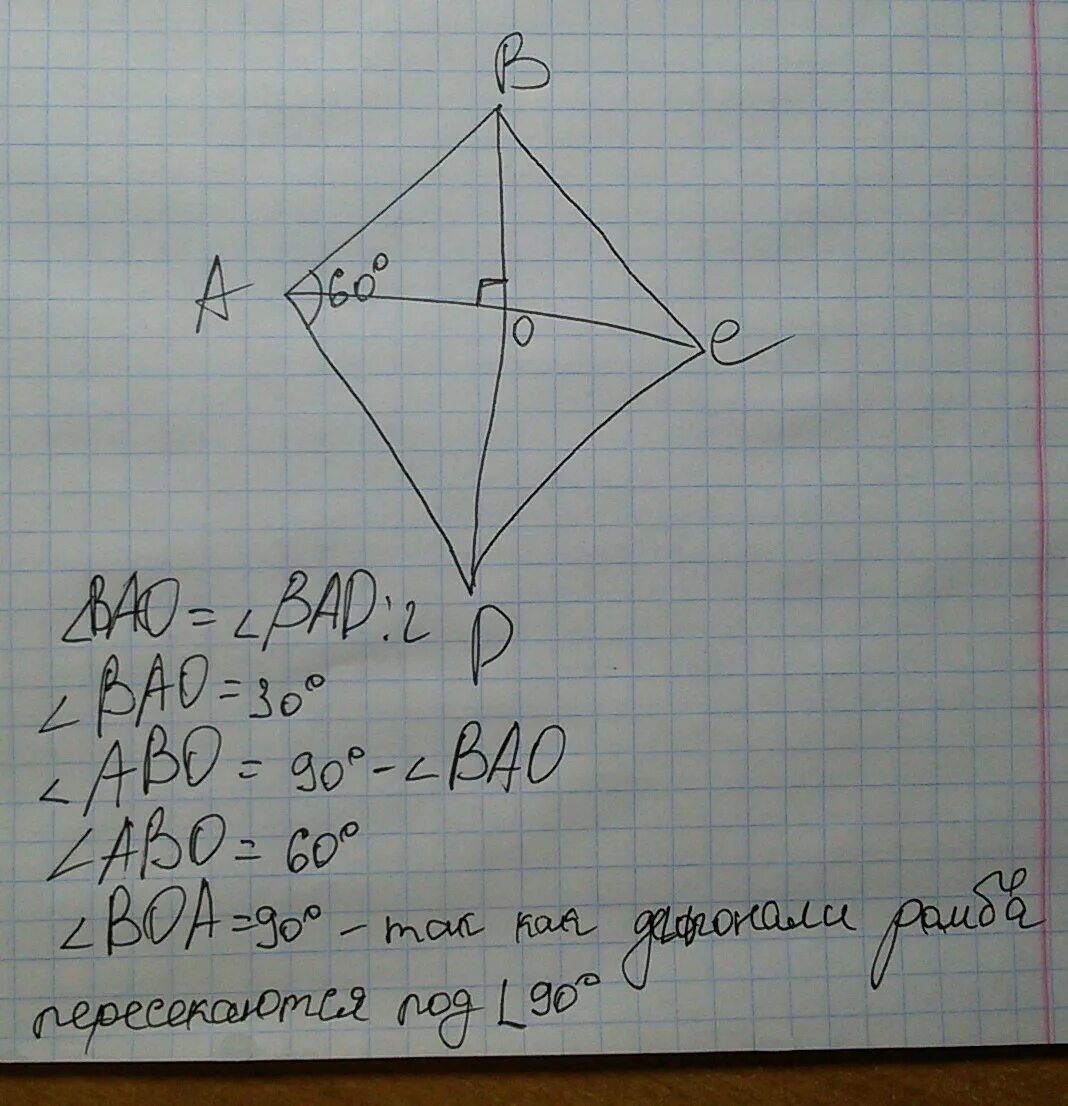 B
A
60°
O
C
D
∠BAO = ∠BAD : 2
∠BAO = 30°
∠ABO = 90° - ∠BAO
∠ABO = 60°
∠BOA = 90° - так как ромба
пересекаются под ∟90°